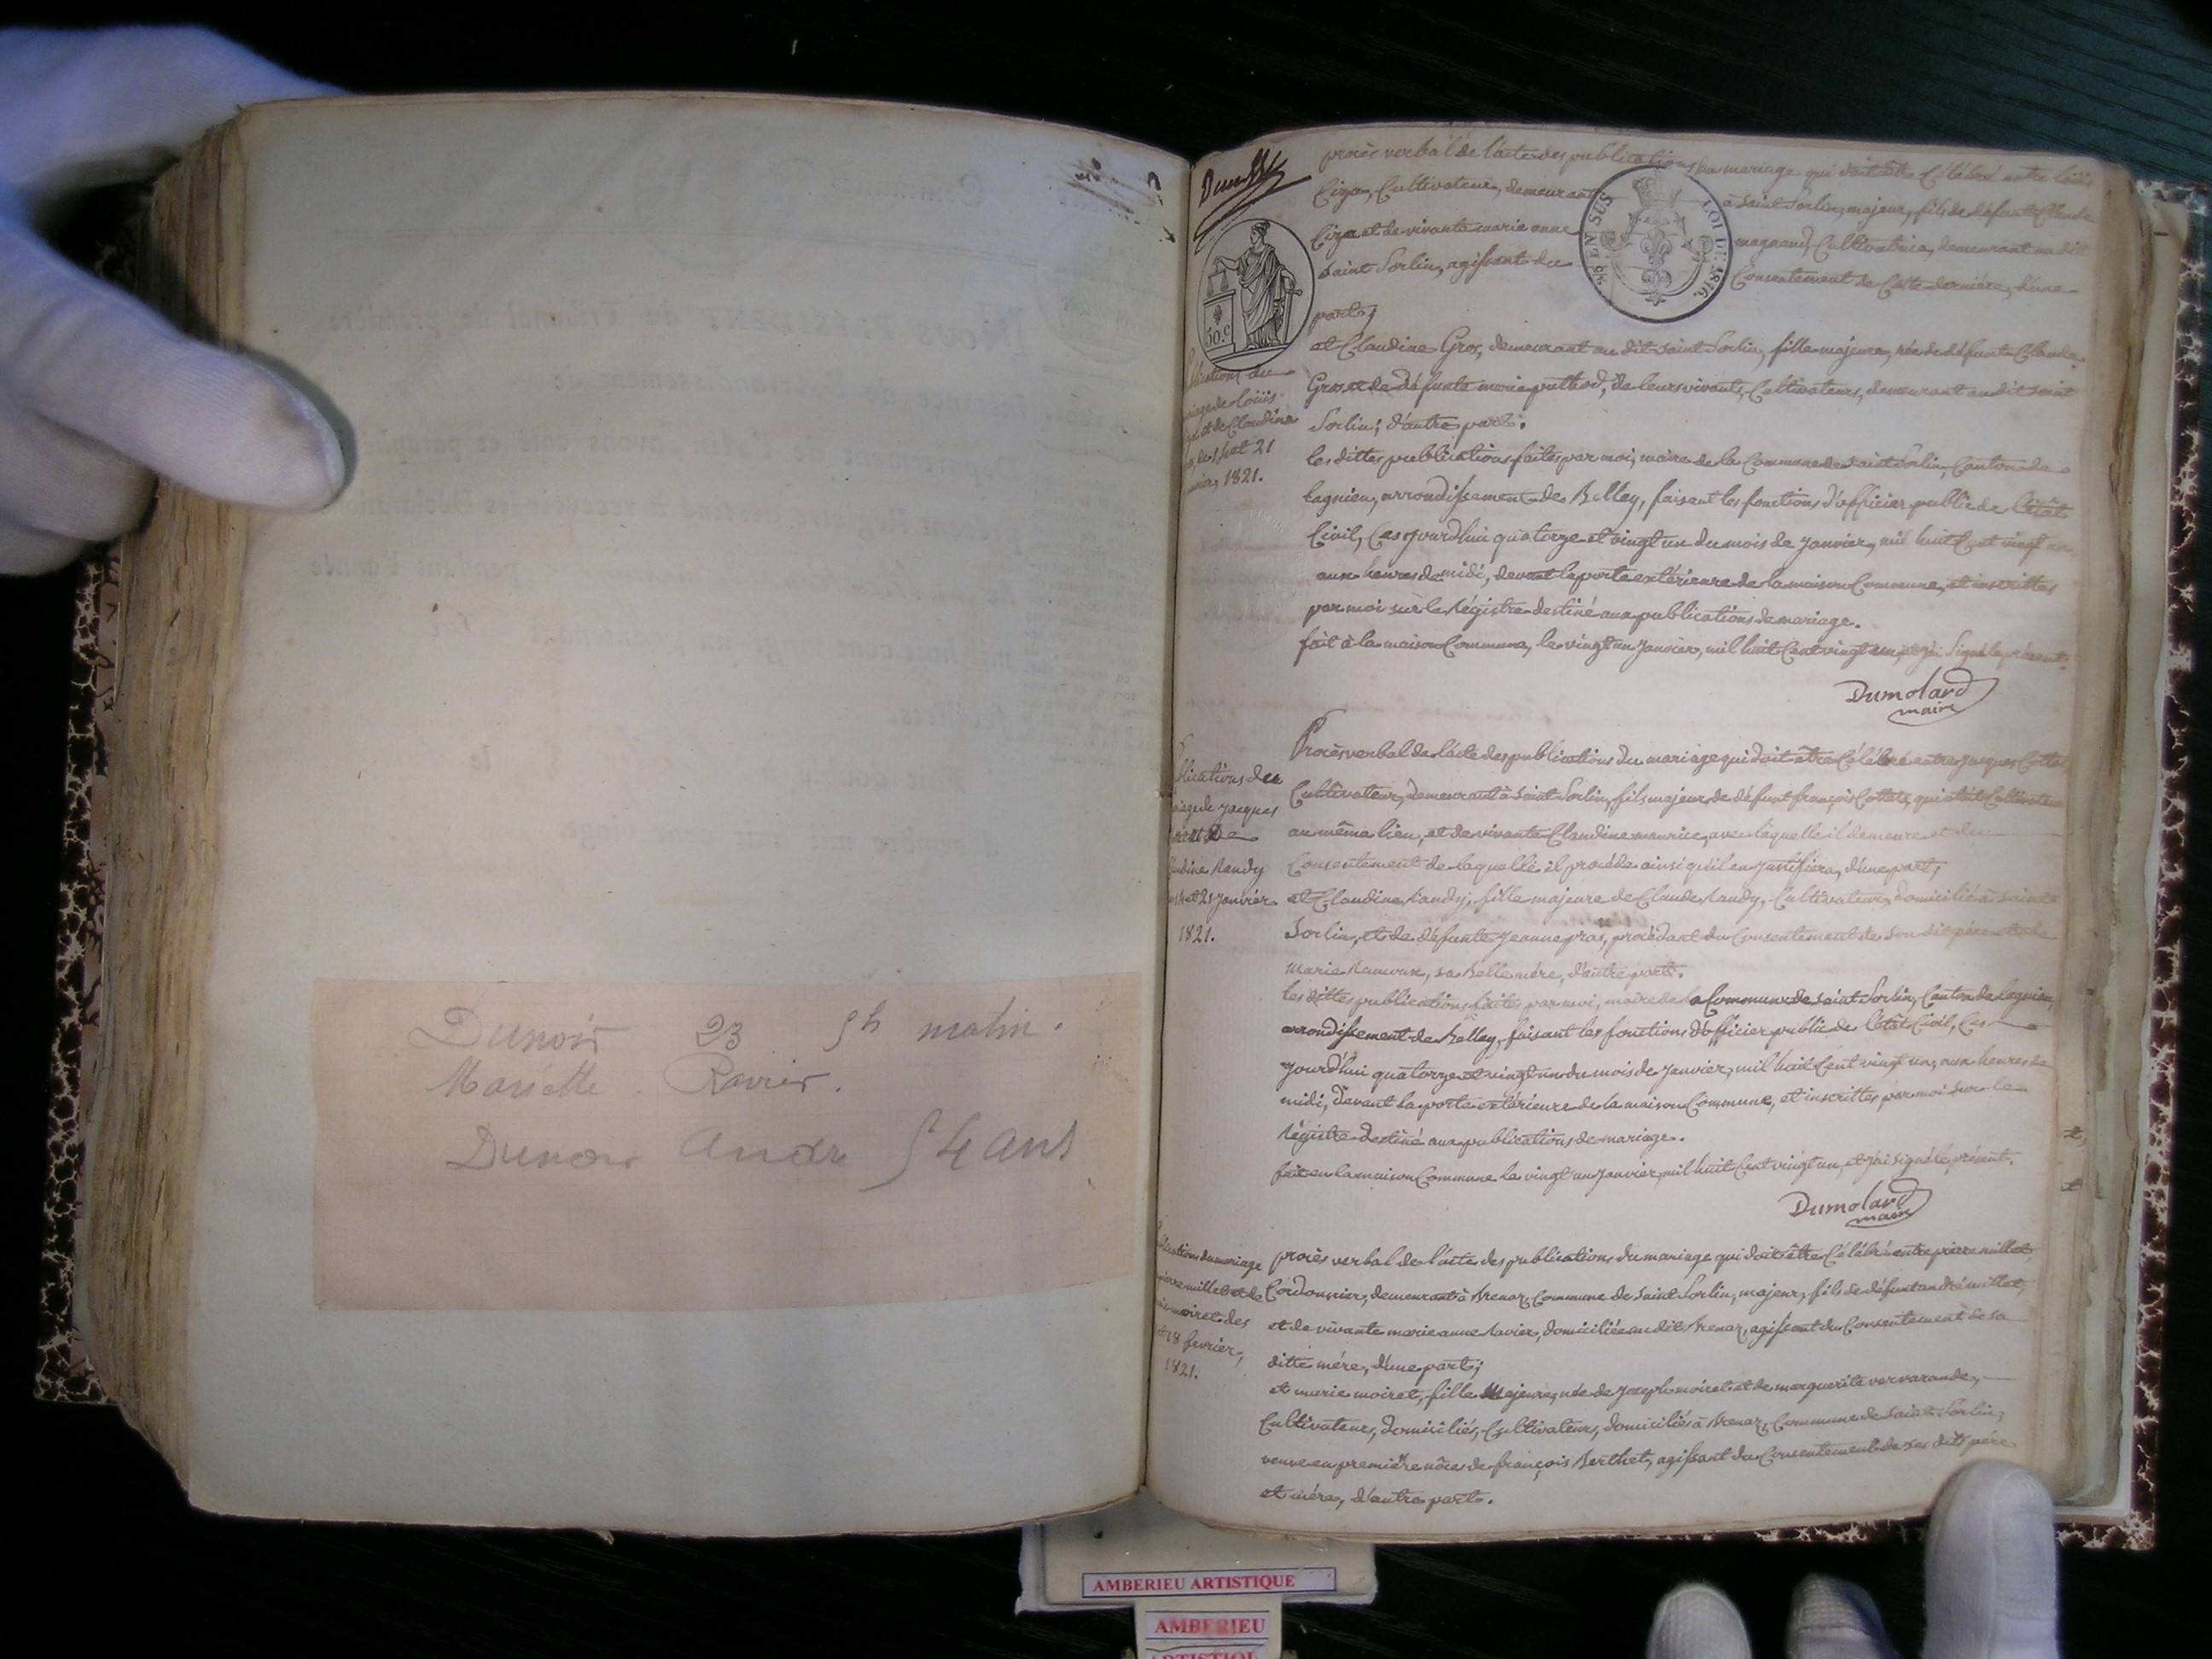 Dunoir 23 5h matin.
Mariette Ravier.
Dunoir André 54 ans
50.c
EN SUS
LOI DE 1816.
procès verbal de l'acte des publications du mariage qui doit être Célébré entre loüis
Ciza, Cultivateur, demeurant à Saint Sorlin, majeur, fils de défunt Claude
Ciza et de vivante marie anne magnand, Cultivatrice, demeurant au dit
saint Sorlin, agissant du Consentement de Cette dernière, d'une
part;
et Claudine Gros, demeurant au dit saint Sorlin, fille majeure, née de défunt Claude
Gros et de défunte marie puthod, de leurs vivants, Cultivateurs, demeurant au dit saint
Sorlin; d'autre part.
les dittes publications faites par moi, maire de la Commune de saint Sorlin, Canton de
lagnieu, arrondissement de Belley, faisant les fonctions d'officier public de l'état
Civil, Ces jourd'hui quatorze et vingt un du mois de janvier, mil huit Cent vingt un
aux heures de midi, devant la porte extérieure de la maison Commune, et inscrittes
par moi sur le Régistre destiné aux publications de mariage.
fait à la maison Commune, le vingt un janvier, mil huit Cent vingt un, et j'ai Signé le présent.
Dumolard
maire
blications du
riage de loüis
et de Claudine
et 21
1821.
Procès verbal de l'acte des publications du mariage qui doit être Célébré entre jacques Cottet
Cultivateur, demeurant à Saint Sorlin, fils majeur de défunt françois Cottet, qui étoit Cultivateur
au même lieu, et de vivante Claudine maurice, avec laquelle il demeure et du
Consentement de laquelle il procède ainsi qu'il en justifiera, d'une part;
et Claudine Randy, fille majeure de Claude Randy, Cultivateur, domicilié à saint
Sorlin, et de défunte jeanne pras, procédant du Consentement de son dit père et de
marie Ramoux, sa Belle mère, d'autre part.
les dittes publications faites par moi, maire de la Commune de saint Sorlin, Canton de lagnieu,
arrondissement de Belley, faisant les fonctions d'officier public de l'état Civil, Ces
jourd'hui quatorze et vingt un du mois de janvier, mil huit Cent vingt un, aux heures de
midi, devant la porte extérieure de la maison Commune, et inscrittes par moi sur le
Régistre destiné aux publications de mariage.
fait en la maison Commune le vingt un janvier, mil huit Cent vingt un, et j'ai signé le présent.
Dumolard
maire
blications du
riage de jacques
et de
udine Randy
14 et 21 janvier
1821.
procès verbal de l'acte des publications du mariage qui doit être Célébré entre pierre millet,
Cordonnier, demeurant à Brenaz, Commune de Saint Sorlin, majeur, fils de défunt andré millet,
et de vivante marie anne Ravier, domiciliée au dit Brenaz, agissant du Consentement de sa
ditte mère, d'une part;
et marie moiret, fille majeure, née de joseph moiret et de marguerite vervarande,
Cultivateurs, domiciliés, Cultivateurs, domiciliés à Brenaz, Commune de Saint Sorlin,
veuve en première nôce de françois Berthet, agissant du Consentement de ses dits père
et mère, d'autre part.
blications du mariage
pierre millet et de
moiret des
18 fevrier,
1821.
AMBERIEU ARTISTIQUE
AMBERIEU
ARTISTIQUE